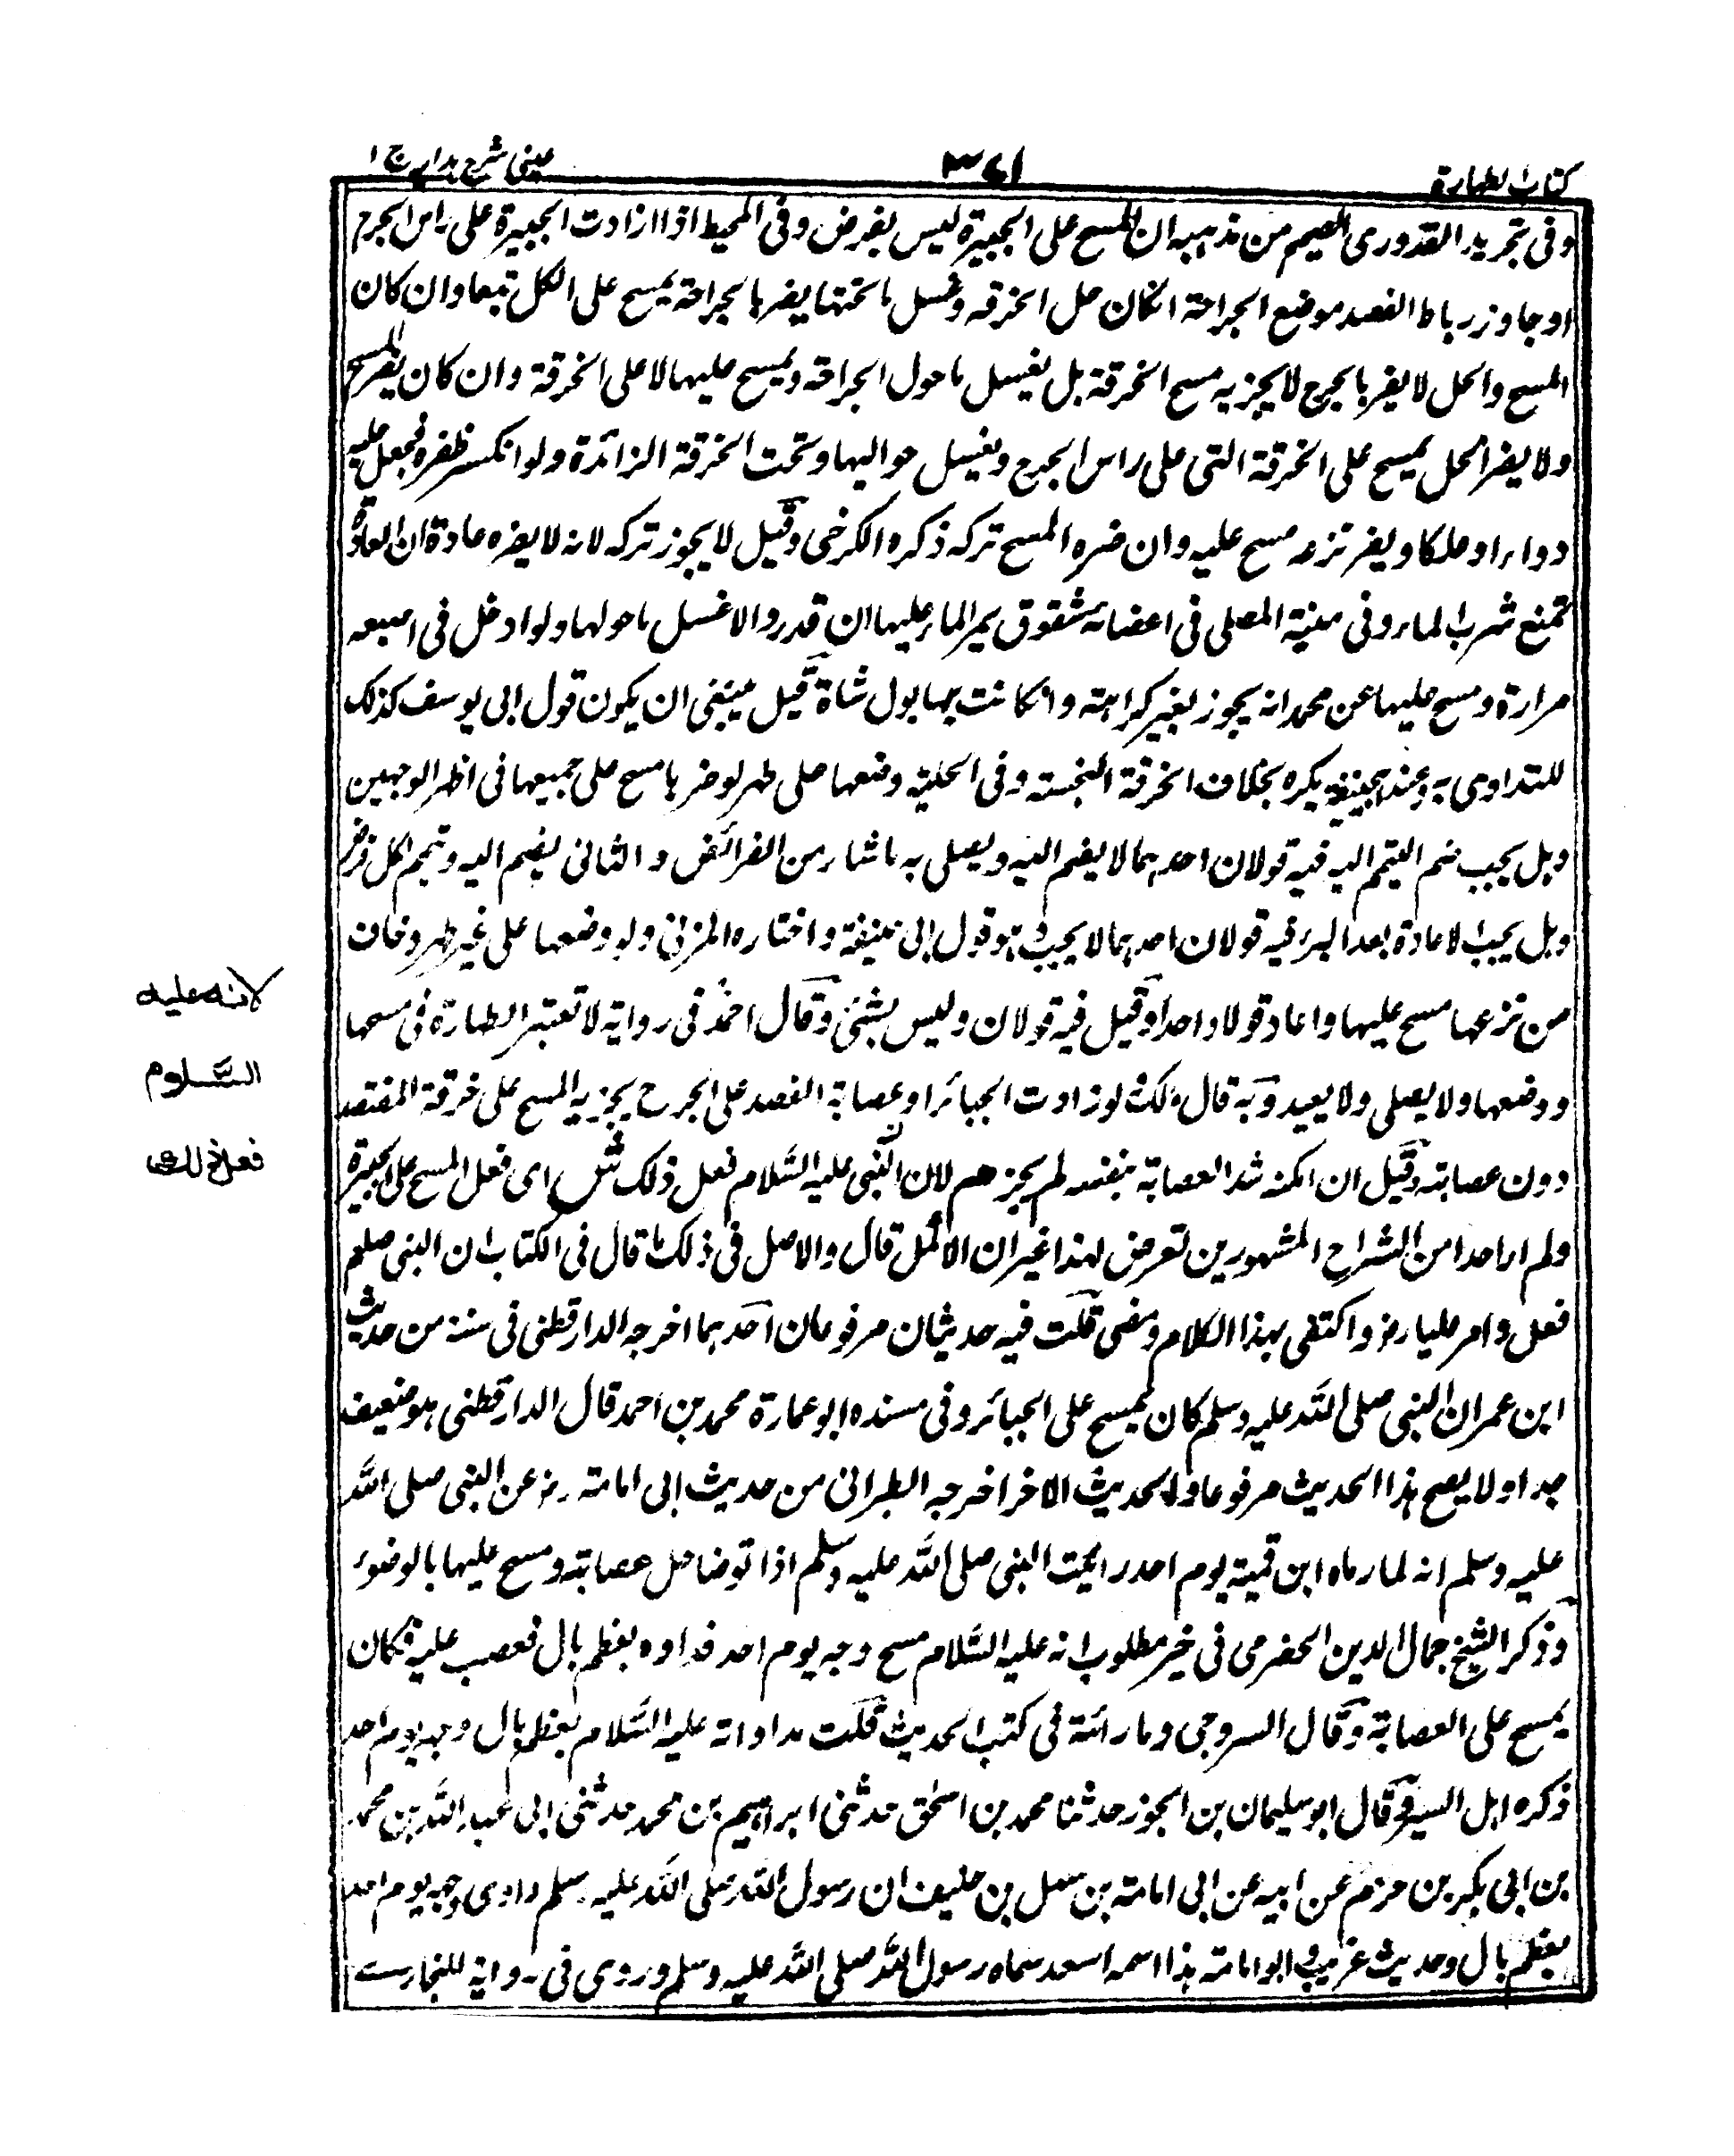 كتاب الطهارة
٣٤١
عينى شرح هدايه ج ١
وفى تجريد القدورى الصحيح من مذهبه ان المسح على الجبيرة ليس بفرض وفى المحيط اذا زادت الجبيرة على راس الجرح
او جاوز رباط الفصد موضع الجراحة انكان حل الخرقه وغسل ما تحتها يضر بالجراحة يمسح على الكل تبعا وان كان
المسح والحل لا يضر بالجرح لا يجزيه مسح الخرقة بل يغسل ما حول الجراحة ويمسح عليها لا على الخرقة وان كان يضر المسح
ولا يضر الحل يمسح على الخرقة التى على راس الجرح ويغسل حواليها وتحت الخرقة الزائدة ولو انكسر ظفره فجعل عليه
دواء او علكا ويضر نزعه مسح عليه وان ضره المسح تركه ذكره الكرخى وقيل لا يجوز تركه لانه لا يضره عادة ان العادة
تمنع شرب الماء وفى منية المصلى فى اعضائه شقوق يمر الماء عليها ان قدر والا غسل ما حولها ولو ادخل فى اصبعه
مرارة ومسح عليها عن محمد انه يجوز بغير كراهة وانكانت بها بول شاة قيل ينبغى ان يكون قول ابى يوسف كذلك
للتداوى به وعند ابيحنيفة يكره بخلاف الخرقة النجسة وفى الحلية وضعها على طهر لو ضر بها مسح على جميعها فى اظهر الوجهين
وهل يجب ضم التيمم اليه فيه قولان احدهما لا يضم اليه ويصلى به ما شاء من الفرائض والثانى يضم اليه وتيمم لكل فرض
وهل يجب الاعادة بعد البرء فيه قولان احدهما لا يجب وهو قول ابى حنيفة واختاره المزنى ولو وضعها على غير طهر وخاف
من نزعها مسح عليها واعاد قولا واحدا وقيل فيه قولان وليس بشئ وقال احمد فى رواية لا تعتبر الطهارة فى مسحها
ووضعها ولا يصلى ولا يعيد وبه قال مالك لو زادت الجبائر او عصابة الفصد على الجرح يجزيه المسح على خرقة المفتصد
دون عصابته وقيل ان امكنه شد العصابة بنفسه لم يجز هم لان النبى عليه السلام فعل ذلك ش اى فعل المسح على الجبيرة
ولم ار احدا من الشراح المشهورين تعرض لهذا غير ان الاكمل قال والاصل فى ذلك ما قال فى الكتاب ان النبى صلعم
فعل وامر عليا رض واكتفى بهذا الكلام ومضى قلت فيه حديثان مرفوعان احدهما اخرجه الدارقطنى فى سننه من حديث
ابن عمر ان النبى صلى الله عليه وسلم كان يمسح على الجبائر وفى مسنده ابو عمارة محمد بن احمد قال الدارقطنى هو ضعيف
جدا ولا يصح هذا الحديث مرفوعا والحديث الاخر اخرجه الطبرانى من حديث ابى امامة رض عن النبى صلى الله
عليه وسلم انه لما رماه ابن قمية يوم احد رايت النبى صلى الله عليه وسلم اذا توضا حل عصابته ومسح عليها بالوضوء
وذكر الشيخ جمال الدين الحضرمى فى خير مطلوب انه عليه السلام مسح وجه يوم احد فداوه بعظم بال فعصب عليه فكان
يمسح على العصابة وقال السروجى وما رائته فى كتب الحديث قلت مداواته عليه السلام بعظم بال وجهه يوم احد
ذكره اهل السير وقال ابو سليمان بن الجوز حدثنا محمد بن اسحق حدثنى ابراهيم بن محمد حدثنى ابى عبد الله بن محمد
بن ابى بكر بن حزم عن ابيه عن ابى امامة بن سهل بن حنيف ان رسول الله صلى الله عليه وسلم داوى وجهه يوم احد
بعظم بال وحديث غريب وابو امامة هذا اسمه اسعد سماه رسول الله صلى الله عليه وسلم وروى فى رواية للبخارى
لانه عليه
السلام
فعل ذلك